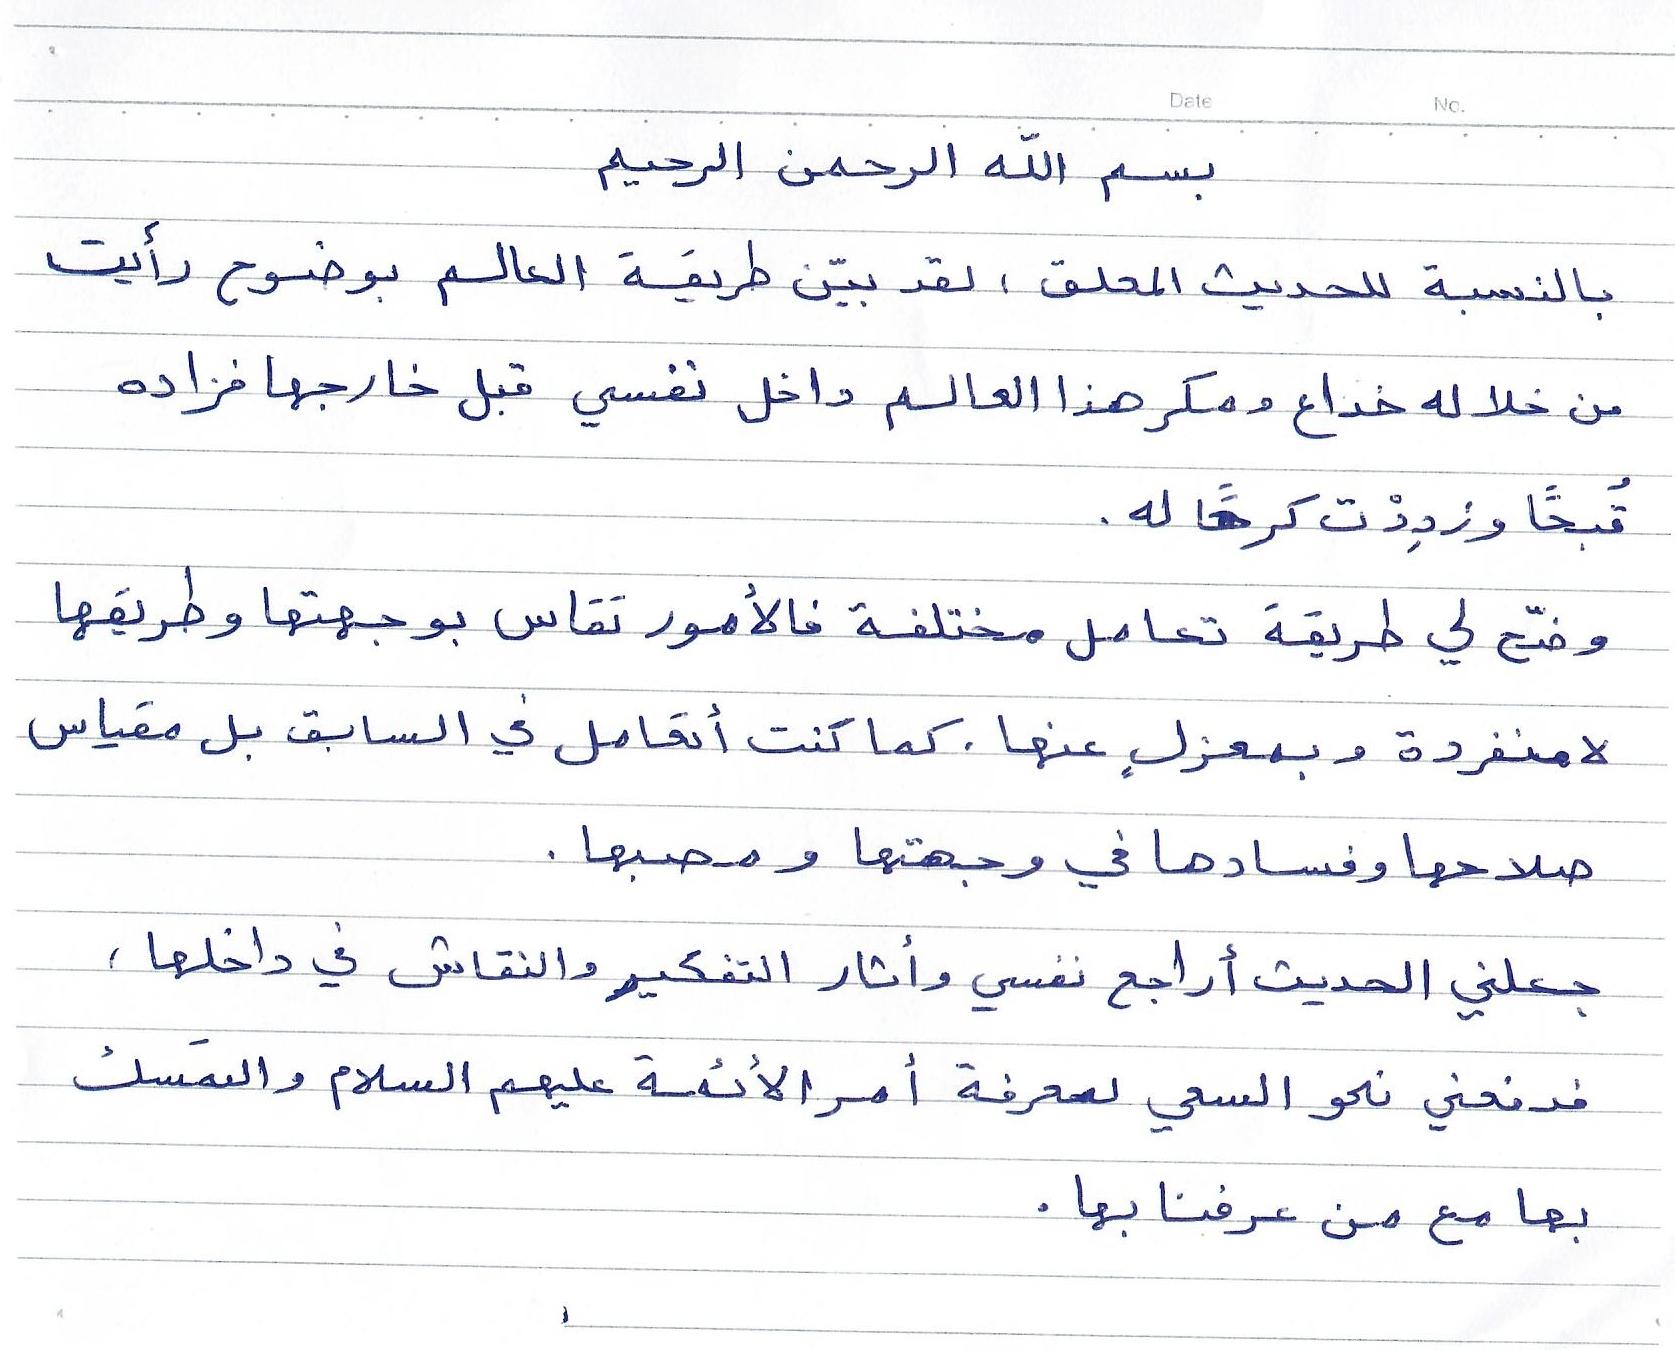 Date No.
بسم اللّه الرحمن الرحيم
بالنسبة للحديث المعلق ، لقد بيّن طريقة العالم بوضوح رأيت
من خلاله خداع ومكر هذا العالم داخل نفسي قبل خارجها فزاده
قُبحًا وزدِدْت كرهًا له .
وضّح لي طريقة تعامل مختلفة فالأمور تقاس بوجهتها وطريقها
لا منفردة وبمعزلٍ عنها . كما كنت أتعامل في السابق بل مقياس
صلاحها وفسادها في وجهتها ومصبها .
جعلني الحديث أراجع نفسي وأثار التفكير والنقاش في داخلها ،
فدفعني نحو السعي لمعرفة أمر الأئمة عليهم السلام والتمَسكُ
بها مع من عرفنا بها .